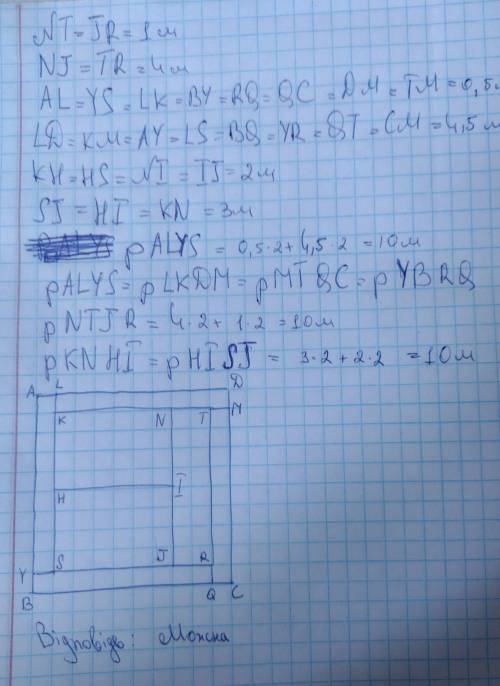 NT = JR = 1 м
NJ = TR = 4 м
AL = YS = LK = BY = RQ = QC = DM = TM = 0,5 м
LD = KM = AY = LS = BQ = YR = QT = CM = 4,5 м
KH = HS = NI = IJ = 2 м
SJ = HI = KN = 3 м
pALYS = 0,5·2 + 4,5·2 = 10 м
pALYS = pLKDM = pMTQC = pYBRQ
pNTJR = 4·2 + 1·2 = 10 м
pKNHI = pHISJ = 3·2 + 2·2 = 10 м
A L D
K N T M
H I
S J R
Y
B Q C
Відповідь: Можна